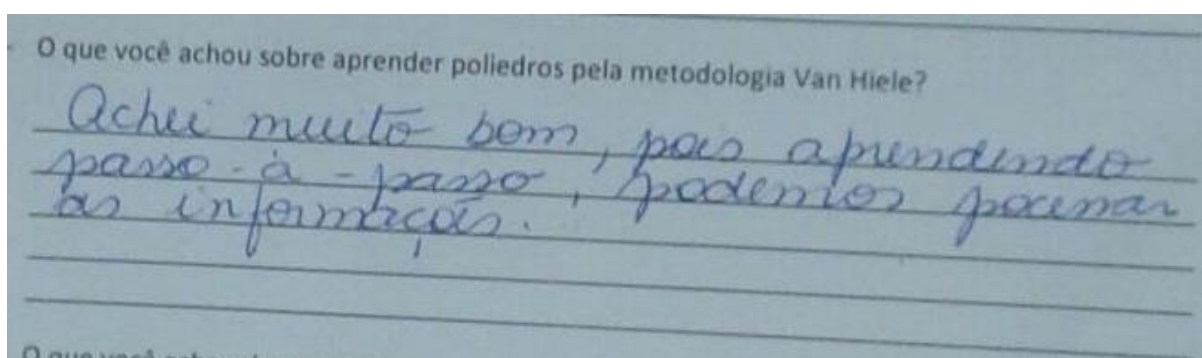 O que você achou sobre aprender poliedros pela metodologia Van Hiele?
Achei muito bom, pois aprendendo
passo-à-passo, podemos
as informações.
O que você